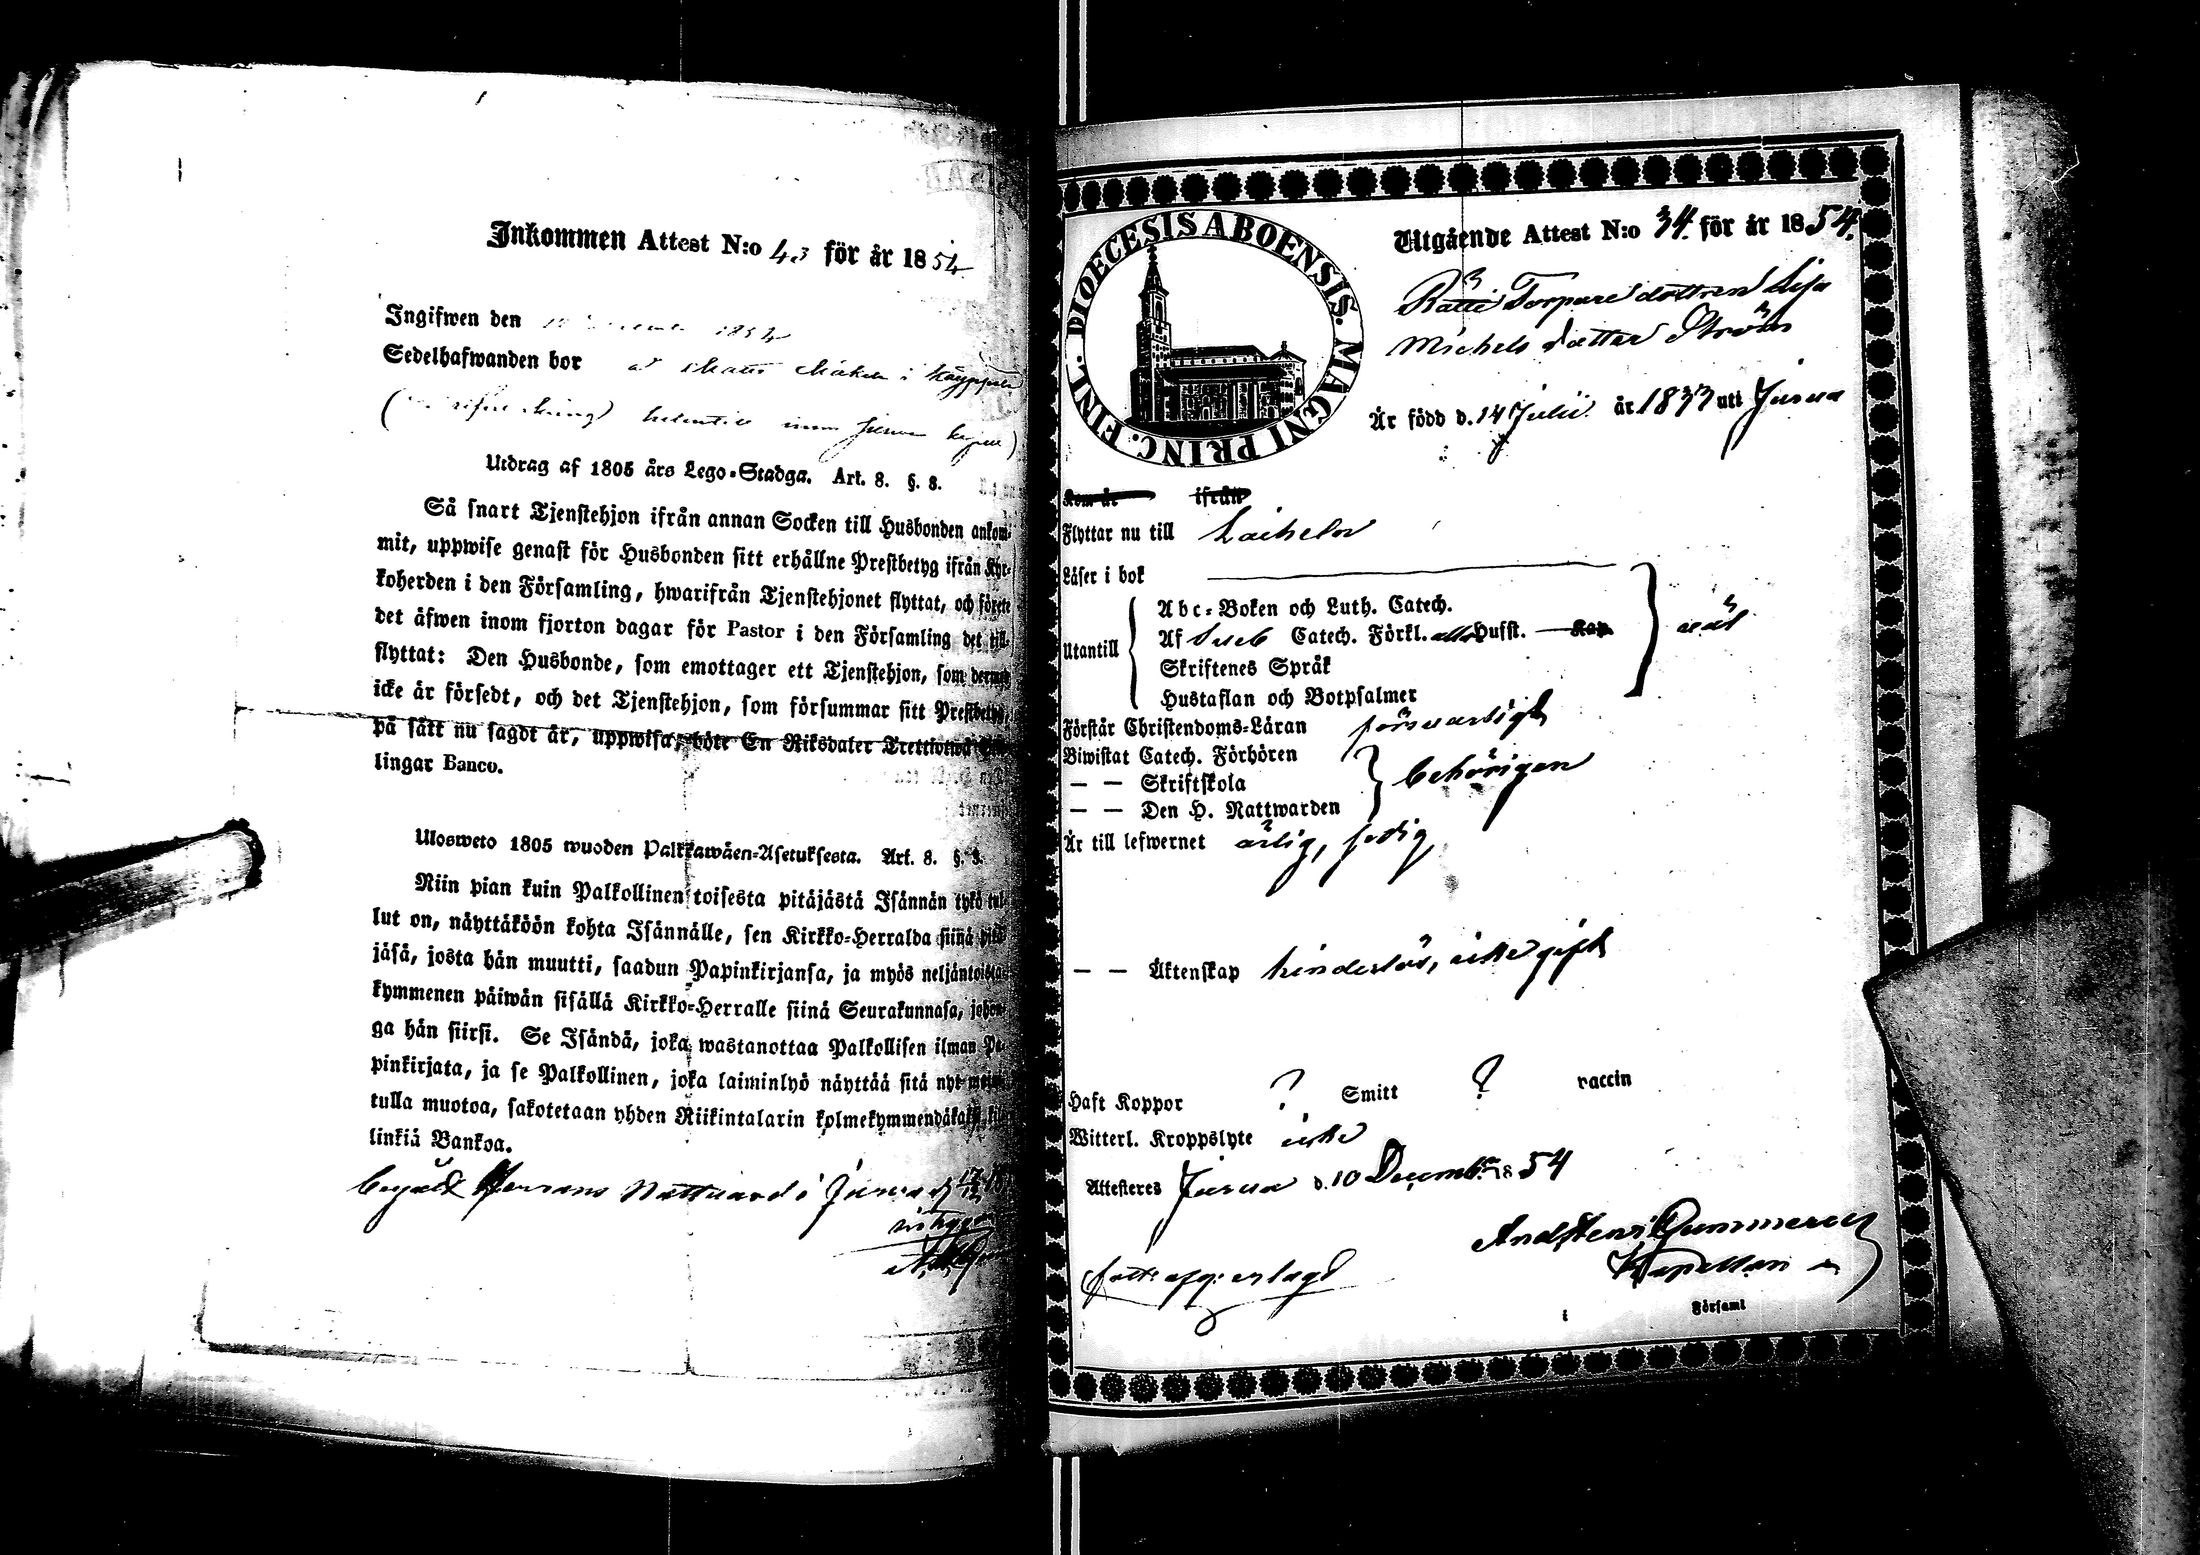 Inkommen Attest N:o 43 för år 1854
Ingifwen den 1854
Sedelhafwanden bor
Utdrag af 1805 års Lego-Stadga. Art. 8. §. 8.
Så snart Tjenstehjon ifrån annan Socken till Husbonden ankom-
mit, uppwise genast för Husbonden sitt erhållne Prestbetyg ifrån Kyr-
koherden i den Församling, hwarifrån Tjenstehjonet flyttat, och förete
det äfwen inom fjorton dagar för Pastor i den Församling det till-
flyttat: Den Husbonde, som emottager ett Tjenstehjon, som dermed
icke är försedt, och det Tjenstehjon, som försummar sitt Prestbetyg,
på sätt nu sagdt är, uppwisa, böte En Riksdaler Trettiotwå
lingar Banco.
Ulosweto 1805 wuoden Palkkawäen-Asetuksesta. Art. 8. §. 8.
Niin pian kuin Palkollinen toisesta pitäjästä Isännän tykö tul-
lut on, näyttäköön kohta Isännälle, sen Kirkko-Herralda siinä pitä-
jäsä, josta hän muutti, saadun Papinkirjansa, ja myös neljäntoista-
kymmenen päiwän sisällä Kirkko-Herralle siinä Seurakunnasa, johon-
ga hän siirsi. Se Isändä, joka wastanottaa Palkollisen ilman Pa-
pinkirjata, ja se Palkollinen, joka laiminlyö näyttää sitä nyt
tulla muotoa, sakotetaan yhden Riikintalarin kolmekymmendäkaksi
linkiä Bankoa.
Begådt Herrans Nattvard i Jurva d. 17/12
DIOECESIS ABOENSIS. MAGNI PRINC. FINL.
Utgående Attest N:o 34. för år 1854.
Torpare dottren Lisa
Michels dotter Ström
Är född d. 14 Julii år 1833 uti Jurva
Kom år ifrån
Flyttar nu till Laihela
Läser i bok
Utantill
Abc-Boken och Luth. Catech.
Af Sveb Catech. Förkl. Husst. Kap.
Skriftenes Språk
Hustaflan och Botpsalmer
Förstår Christendoms-Läran försvarligt
Biwistat Catech. Förhören
— — Skriftskola
— — Den H. Nattwarden
behörigen
Är till lefwernet ärlig, sedig
— — Äktenskap hinderlös, icke gift
Haft Koppor ? Smitt ? vaccin
Witterl. Kroppslyte icke
Attesteres Jurva d. 10 Decemb. 1854
Gummerus
Kapellan
i Församl